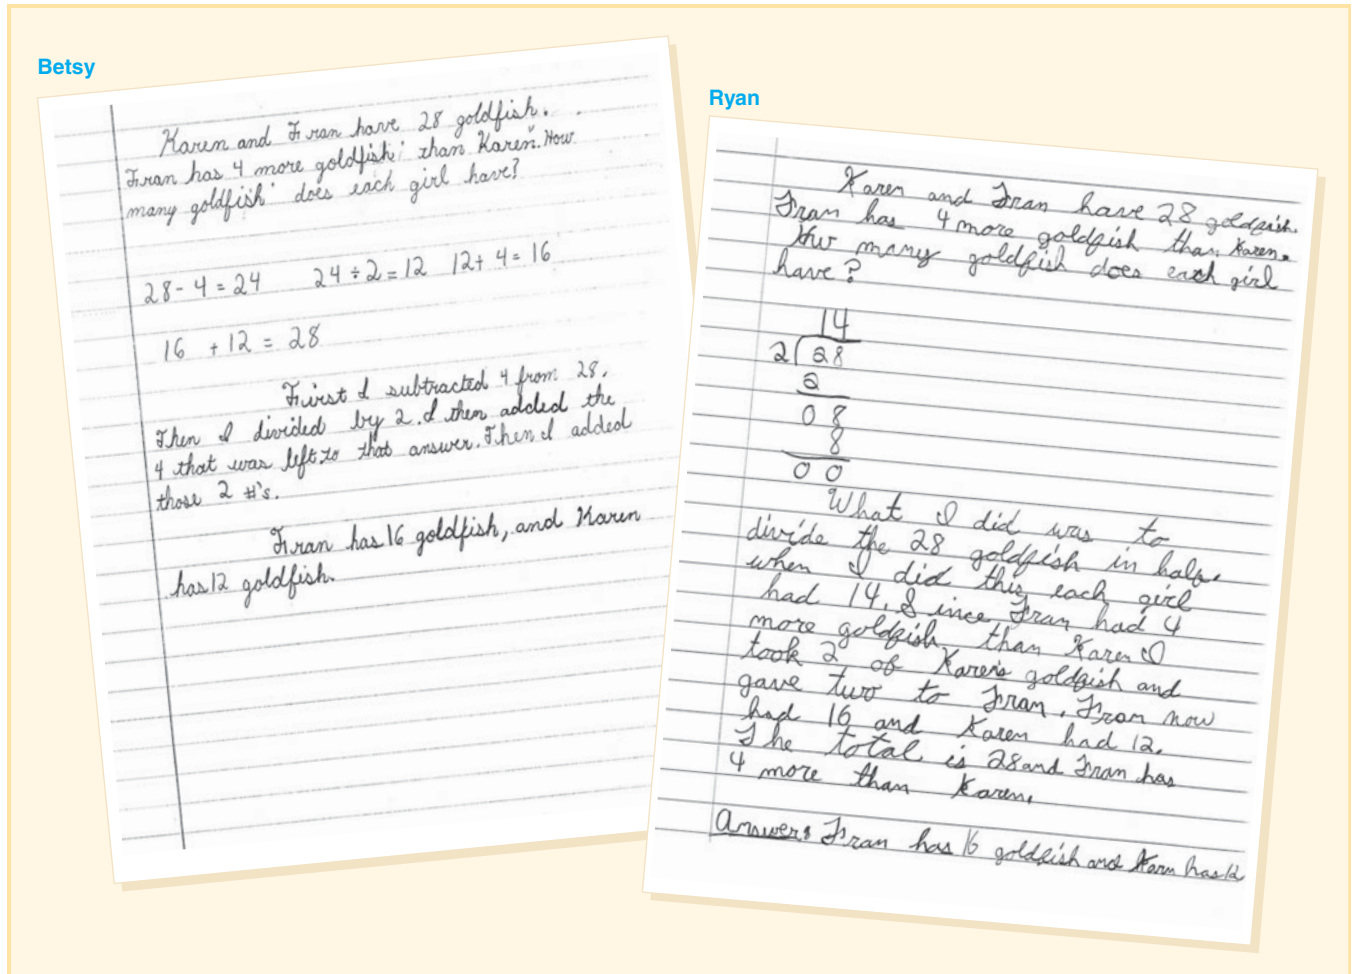 Betsy
Karen and Fran have 28 goldfish.
Fran has 4 more goldfish than Karen. How
many goldfish does each girl have?
28 - 4 = 24 24 ÷ 2 = 12 12 + 4 = 16
16 + 12 = 28
First I subtracted 4 from 28.
Then I divided by 2. I then added the
4 that was left to that answer. Then I added
those 2 #'s.
Fran has 16 goldfish, and Karen
has 12 goldfish.
Ryan
Karen and Fran have 28 goldfish.
Fran has 4 more goldfish than Karen.
How many goldfish does each girl
have?
14
2 28
2
0 8
8
0 0
What I did was to
divide the 28 goldfish in half.
when I did this each girl
had 14. Since Fran had 4
more goldfish than Karen I
took 2 of Karen's goldfish and
gave two to Fran. Fran now
had 16 and Karen had 12.
The total is 28 and Fran has
4 more than Karen.
Answer: Fran has 16 goldfish and Karn has 12